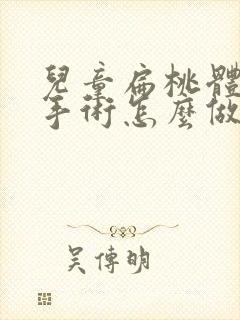 兒童扁桃體
手術怎麼做
吳傳明